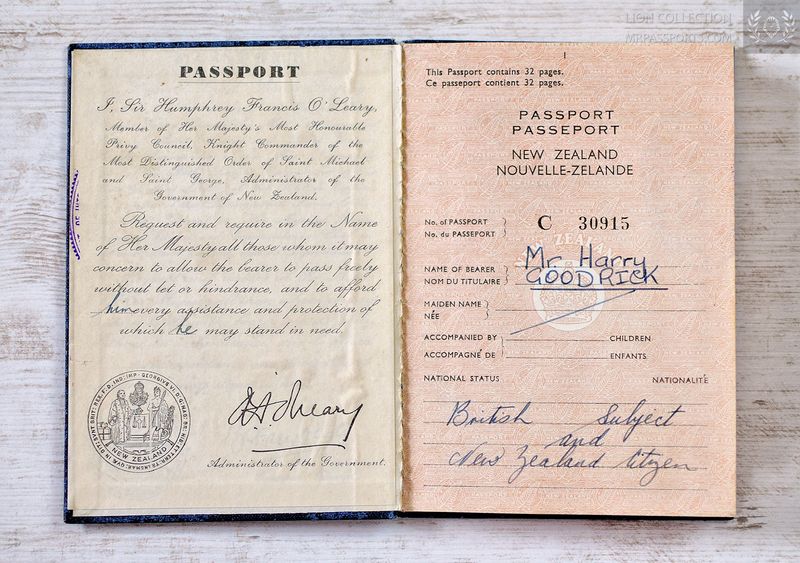 LION COLLECTION
MRPASSPORTS.COM
PASSPORT
I, Sir Humphrey Francis O'Leary,
Member of Her Majesty's Most Honourable
Privy Council, Knight Commander of the
Most Distinguished Order of Saint Michael
and Saint George, Administrator of the
Government of New Zealand.
Request and require in the Name
of Her Majesty all those whom it may
concern to allow the bearer to pass freely
without let or hindrance, and to afford
him every assistance and protection of
which he may stand in need.
NEW ZEALAND
H.F. O'Leary
Administrator of the Government.
This Passport contains 32 pages.
Ce passeport contient 32 pages.
PASSPORT
PASSEPORT
NEW ZEALAND
NOUVELLE-ZELANDE
No. of PASSPORT
No. du PASSEPORT
C 30915
NAME OF BEARER
NOM DU TITULAIRE
Mr. Harry
GOODRICK
MAIDEN NAME
NÉE
ACCOMPANIED BY CHILDREN
ACCOMPAGNÉ DE ENFANTS
NATIONAL STATUS NATIONALITÉ
British Subject
and
New Zealand Citizen